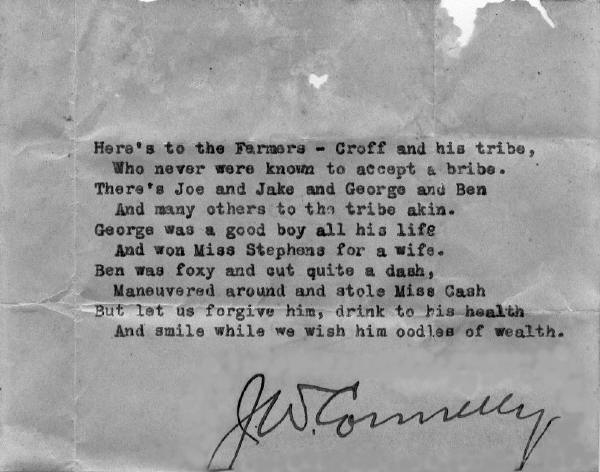 Here's to the Farmers - Croff and his tribe,
Who never were known to accept a bribe.
There's Joe and Jake and George and Ben
And many others to the tribe akin.
George was a good boy all his life
And won Miss Stephens for a wife.
Ben was foxy and cut quite a dash,
Maneuvered around and stole Miss Cash
But let us forgive him, drink to his health
And smile while we wish him oodles of wealth.
J.W. Connelly